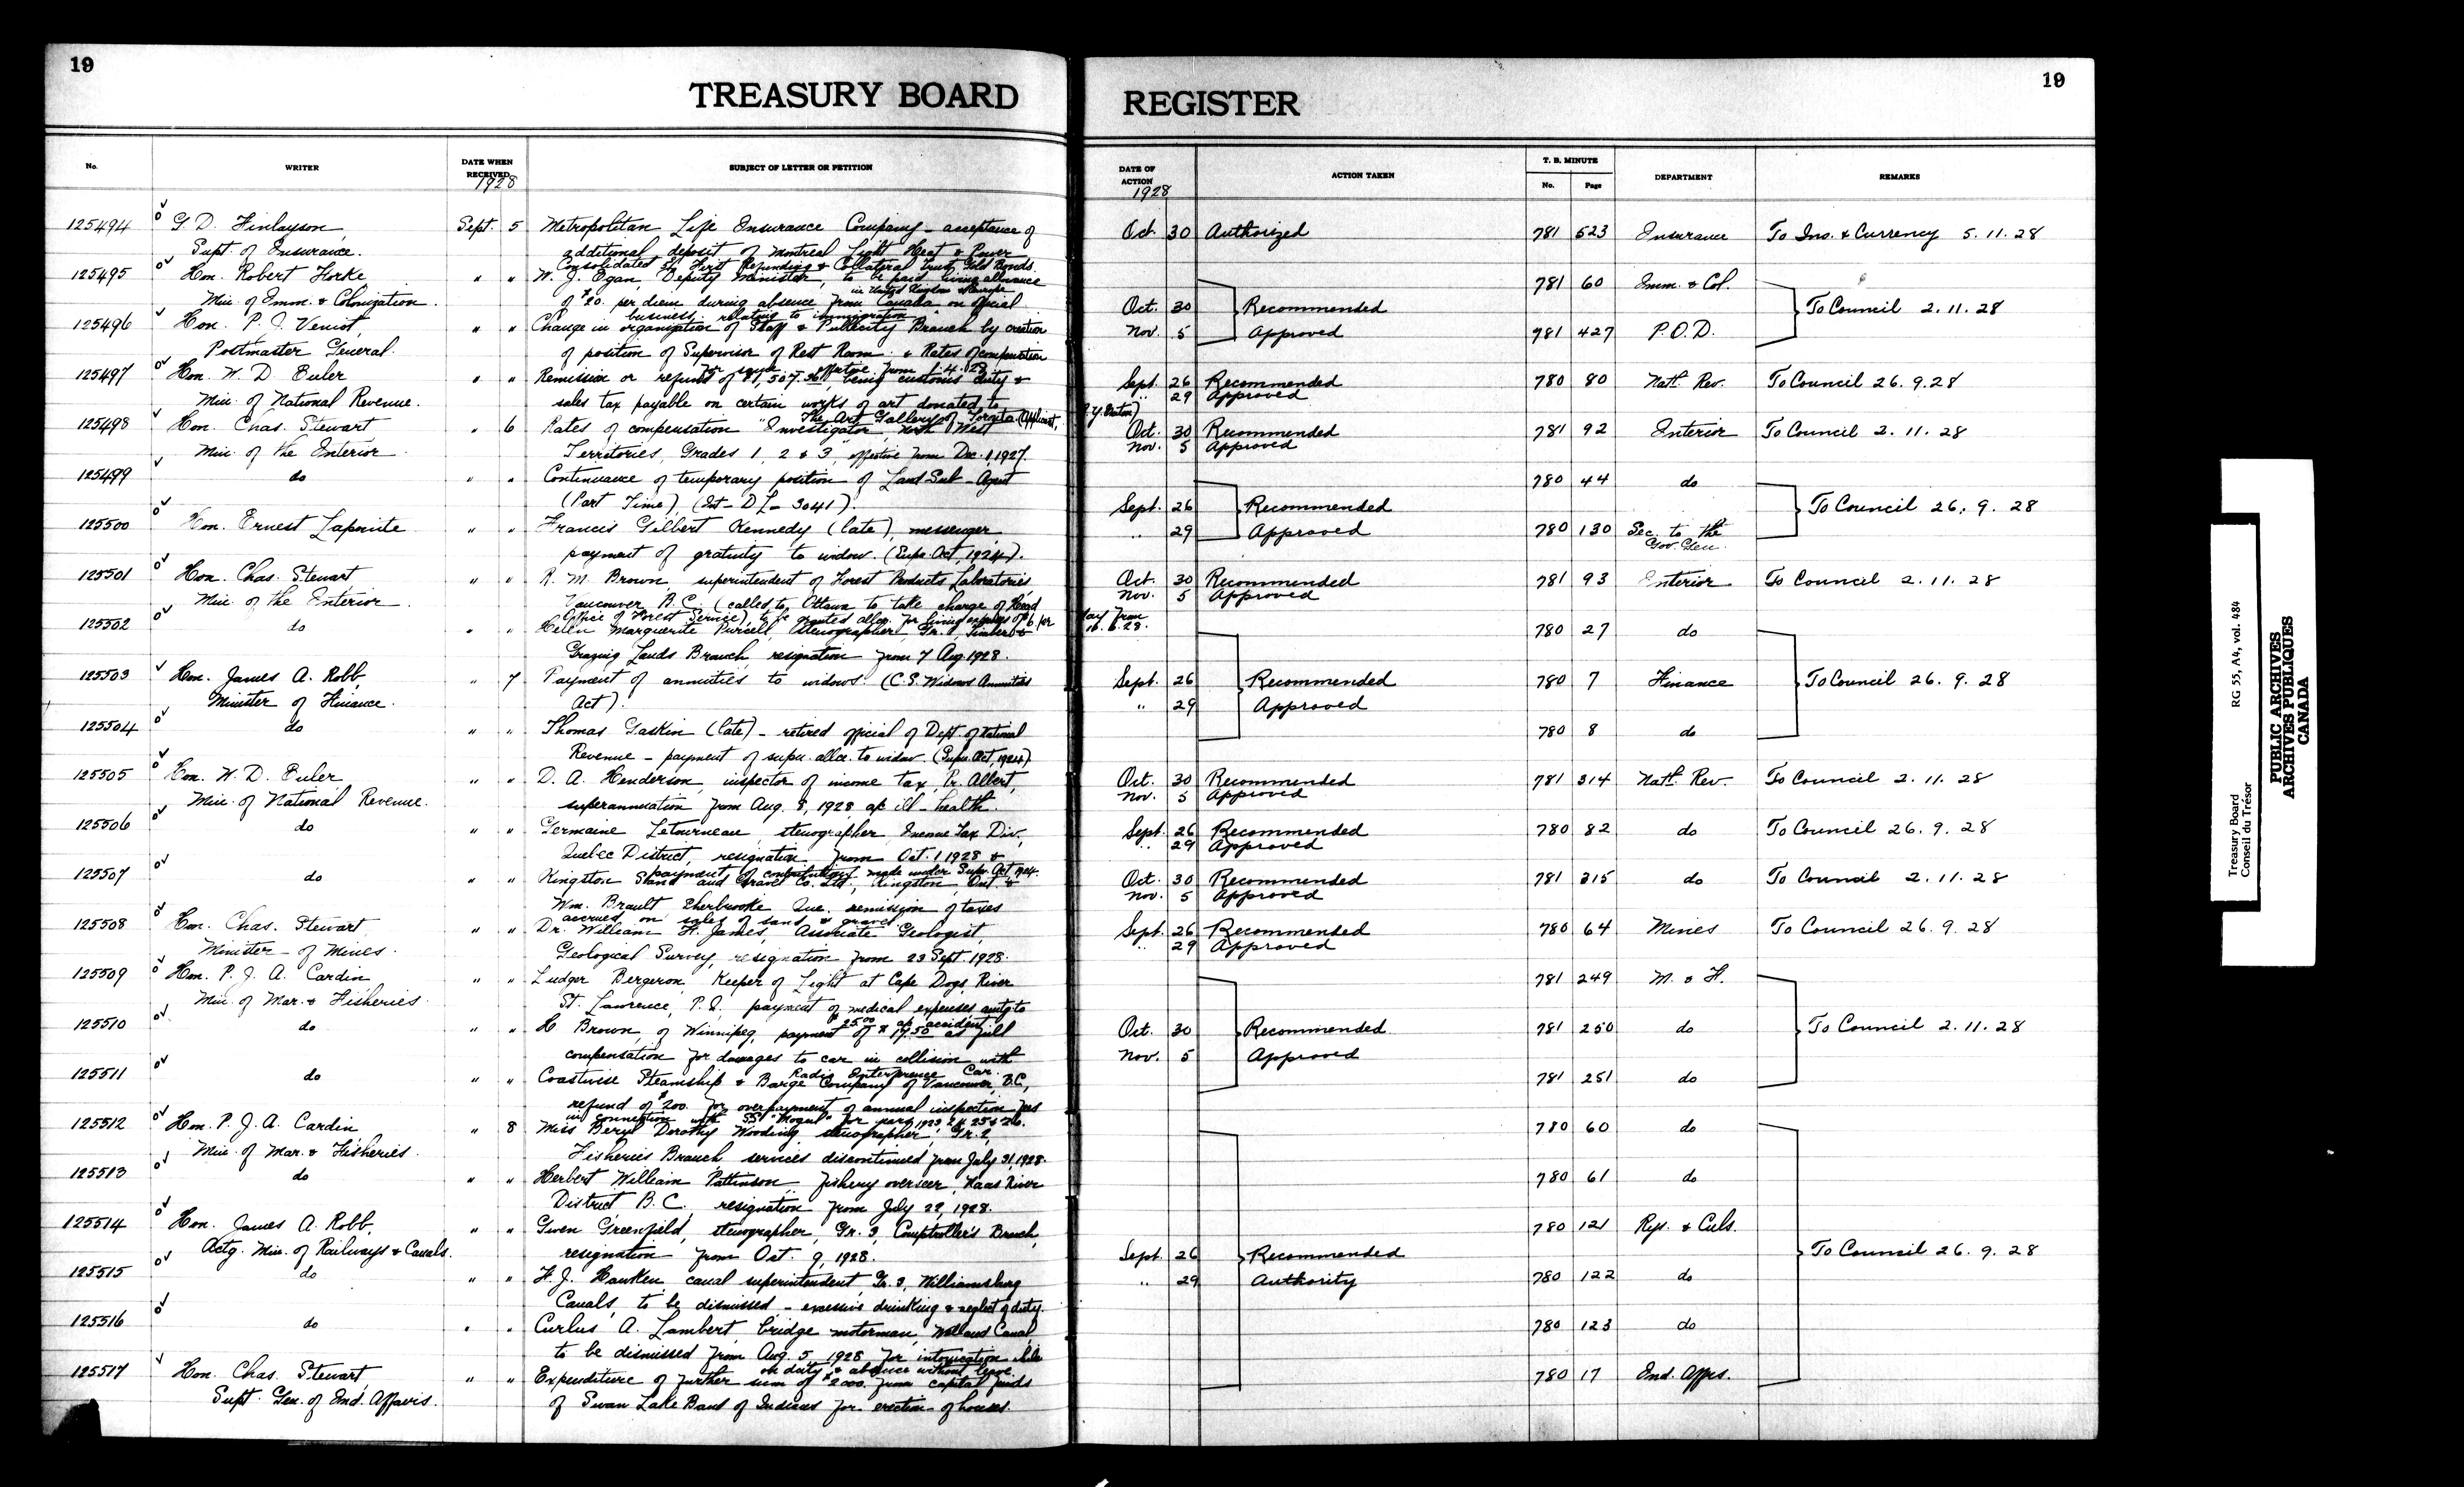 19
TREASURY BOARD
No.
WRITER
DATE WHEN RECEIVED
1928
SUBJECT OF LETTER OR PETITION
125494 G. D. Finlayson, Sept. 5 Metropolitan Life Insurance Company - acceptance of
Supt. of Insurance. additional deposit of Montreal Light Heat & Power
Consolidated 1st First Refunding & Collateral Trust Gold Bonds.
125495 Hon. Robert Forke " " W. J. Egan, Deputy Minister, to be paid living allowance
in United Kingdom & Europe
Min. of Imm. & Colonization. of $20. per diem during absence from Canada on official
business relating to immigration
125496 Hon. P. J. Veniot, " " Change in organization of Staff & Publicity Branch by creation
Postmaster General. of position of Supervisor of Rest Room & Rates of compensation
for same effective from 1.4.28
125497 Hon. W. D. Euler " " Remission or refund of $1,507.36, being customs duty &
Min. of National Revenue. sales tax payable on certain works of art donated to
The Art Gallery of Toronto (Applicant, R.Y. Eaton)
125498 Hon. Chas. Stewart " 6 Rates of compensation "Investigator, North West
Min. of the Interior. Territories, Grades 1, 2 & 3" effective from Dec. 1, 1927.
125499 do " " Continuance of temporary position of Land Sub-Agent
(Part Time), (Int-DL-3041).
125500 Hon. Ernest Lapointe " " Francis Gilbert Kennedy (late), messenger,
payment of gratuity to widow. (Supn. Act, 1924).
125501 Hon. Chas. Stewart " " R. M. Brown, superintendent of Forest Products Laboratories,
Min. of the Interior. Vancouver, B.C. (called to Ottawa to take charge of Head
Office of Forest Service), to be granted allce. for living expenses of $6 per day from 16.6.28.
125502 do " " Helen Marguerite Purcell, stenographer, Gr. 1, Timber &
Grazing Lands Branch, resignation from 7 Aug 1928.
125503 Hon. James A. Robb, " 7 Payment of annuities to widows. (C.S. Widows Annuities
Minister of Finance. Act).
125504 do " " Thomas Gaskin (late) - retired official of Dept. of National
Revenue - payment of supn. allce. to widow. (Supn. Act, 1924)
125505 Hon. W. D. Euler, " " D. A. Henderson, inspector of income tax, Pr. Albert,
Min. of National Revenue. superannuation from Aug. 8, 1928, a/c ill-health.
125506 do " " Germaine Letourneau, stenographer, Income Tax Div.,
Quebec District, resignation from Oct. 1 1928 &
payment of contributions made under Supn. Act, 1924.
125507 do " " Kingston Sand and Gravel Co. Ltd., Kingston, Ont &
Wm. Brault Sherbrooke Que. remission of taxes
accrued on sales of sand & gravel
125508 Hon. Chas. Stewart, " " Dr. William F. James, Associate Geologist,
Minister of Mines. Geological Survey, resignation from 23 Sept 1928.
125509 Hon. P. J. A. Cardin " " Ludger Bergeron, Keeper of Light at Cape Dogs, River
Min. of Mar. & Fisheries. St. Lawrence, P.Q. payment of medical expenses amtg to
$25.00 a/c accident
125510 do " " H. Brown, of Winnipeg, payment of $17.50 as full
compensation for damages to car in collision with
Radio Interference Car.
125511 do " " Coastwise Steamship & Barge Company of Vancouver, B.C.,
refund of $200. for overpayment of annual inspection fees
in connection with SS "Mogul" for years 1923, 24, 25 & 26.
125512 Hon. P. J. A. Cardin " 8 Miss Beryl Dorothy Wooding, stenographer, Gr. 2,
Min. of Mar. & Fisheries. Fisheries Branch, services discontinued from July 31, 1928.
125513 do " " Herbert William Pattinson, fishery overseer, Naas River
District, B.C. resignation from July 22, 1928.
125514 Hon. James A. Robb, " " Gwen Greenfield, stenographer, Gr. 3, Comptroller's Branch,
Actg. Min. of Railways & Canals. resignation from Oct. 9, 1928.
125515 do " " F. J. Hawken, canal superintendent, Gr. 3, Williamsburg
Canals, to be dismissed - excessive drinking & neglect of duty.
125516 do " " Curlus A. Lambert bridge motorman, Welland Canal,
to be dismissed from Aug. 5, 1928, for intoxication while
on duty & absence without leave.
125517 Hon. Chas. Stewart, " " Expenditure of further sum of $2000. from capital funds
Supt. Gen. of Ind. Affairs. of Swan Lake Band of Indians for erection of houses.
19
REGISTER
DATE OF ACTION
1928
ACTION TAKEN
T. B. MINUTE
No. Page
DEPARTMENT
REMARKS
Oct. 30 Authorized 781 523 Insurance To Ins. & Currency 5.11.28
781 60 Imm. & Col.
Oct. 30 Recommended To Council 2.11.28
Nov. 5 Approved 781 427 P.O.D.
Sept. 26 Recommended 780 80 Natl. Rev. To Council 26.9.28
" 29 Approved
Oct. 30 Recommended 781 92 Interior To Council 2.11.28
Nov. 5 Approved
780 44 do
Sept. 26 Recommended To Council 26.9.28
" 29 Approved 780 130 Sec. to the
Gov. Gen.
Oct. 30 Recommended 781 93 Interior To Council 2.11.28
Nov. 5 Approved
780 27 do
Sept. 26 Recommended 780 7 Finance To Council 26.9.28
" 29 Approved
780 8 do
Oct. 30 Recommended 781 314 Natl. Rev. To Council 2.11.28
Nov. 5 Approved
Sept. 26 Recommended 780 82 do To Council 26.9.28
" 29 Approved
Oct. 30 Recommended 781 315 do To Council 2.11.28
Nov. 5 Approved
Sept. 26 Recommended 780 64 Mines To Council 26.9.28
" 29 Approved
781 249 M. & F.
Oct. 30 Recommended 781 250 do To Council 2.11.28
Nov. 5 Approved
781 251 do
780 60 do
780 61 do
780 121 Rys. & Cnls.
Sept. 26 Recommended To Council 26.9.28
" 29 Authority 780 122 do
780 123 do
780 17 Ind. Affrs.
Treasury Board
Conseil du Trésor
RG 55, A4, vol. 484
PUBLIC ARCHIVES
ARCHIVES PUBLIQUES
CANADA